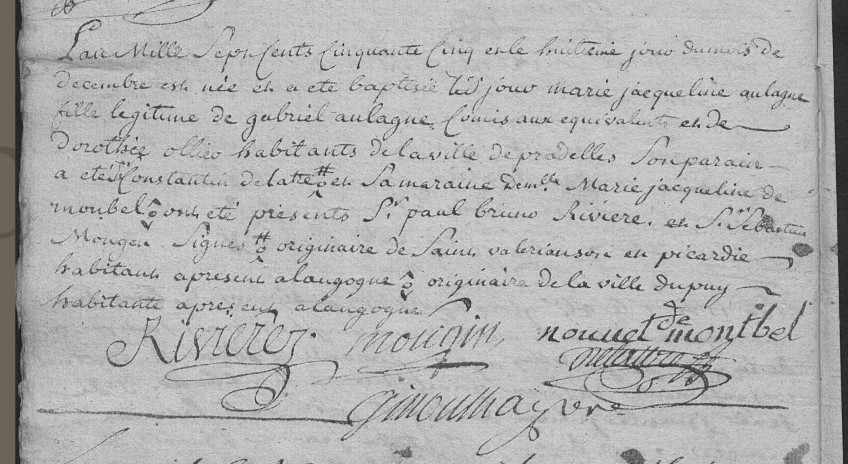 Lan Mille Sept Cents Cinquante Cinq et le huitieme jour du mois de
decembre est née et a eté baptisée led jour marie jacqueline aulagne
fille legitime de gabriel aulagne Comis aux equivalents et de
dorothée ollier habitants de la ville de pradelles Son parain
a eté Sr Constantin delattre et Sa maraine demlle Marie jacqueline de
monbel ont eté présents Sr paul bruno Riviere. et Sr Sebastien
Mougen Signes originaire de Saint valerian en picardie
habitant apresent a langogne originaire de la ville du puy
habitante apresent a langogne
Rivierez mougin nouuet de montbel
ginoumayre